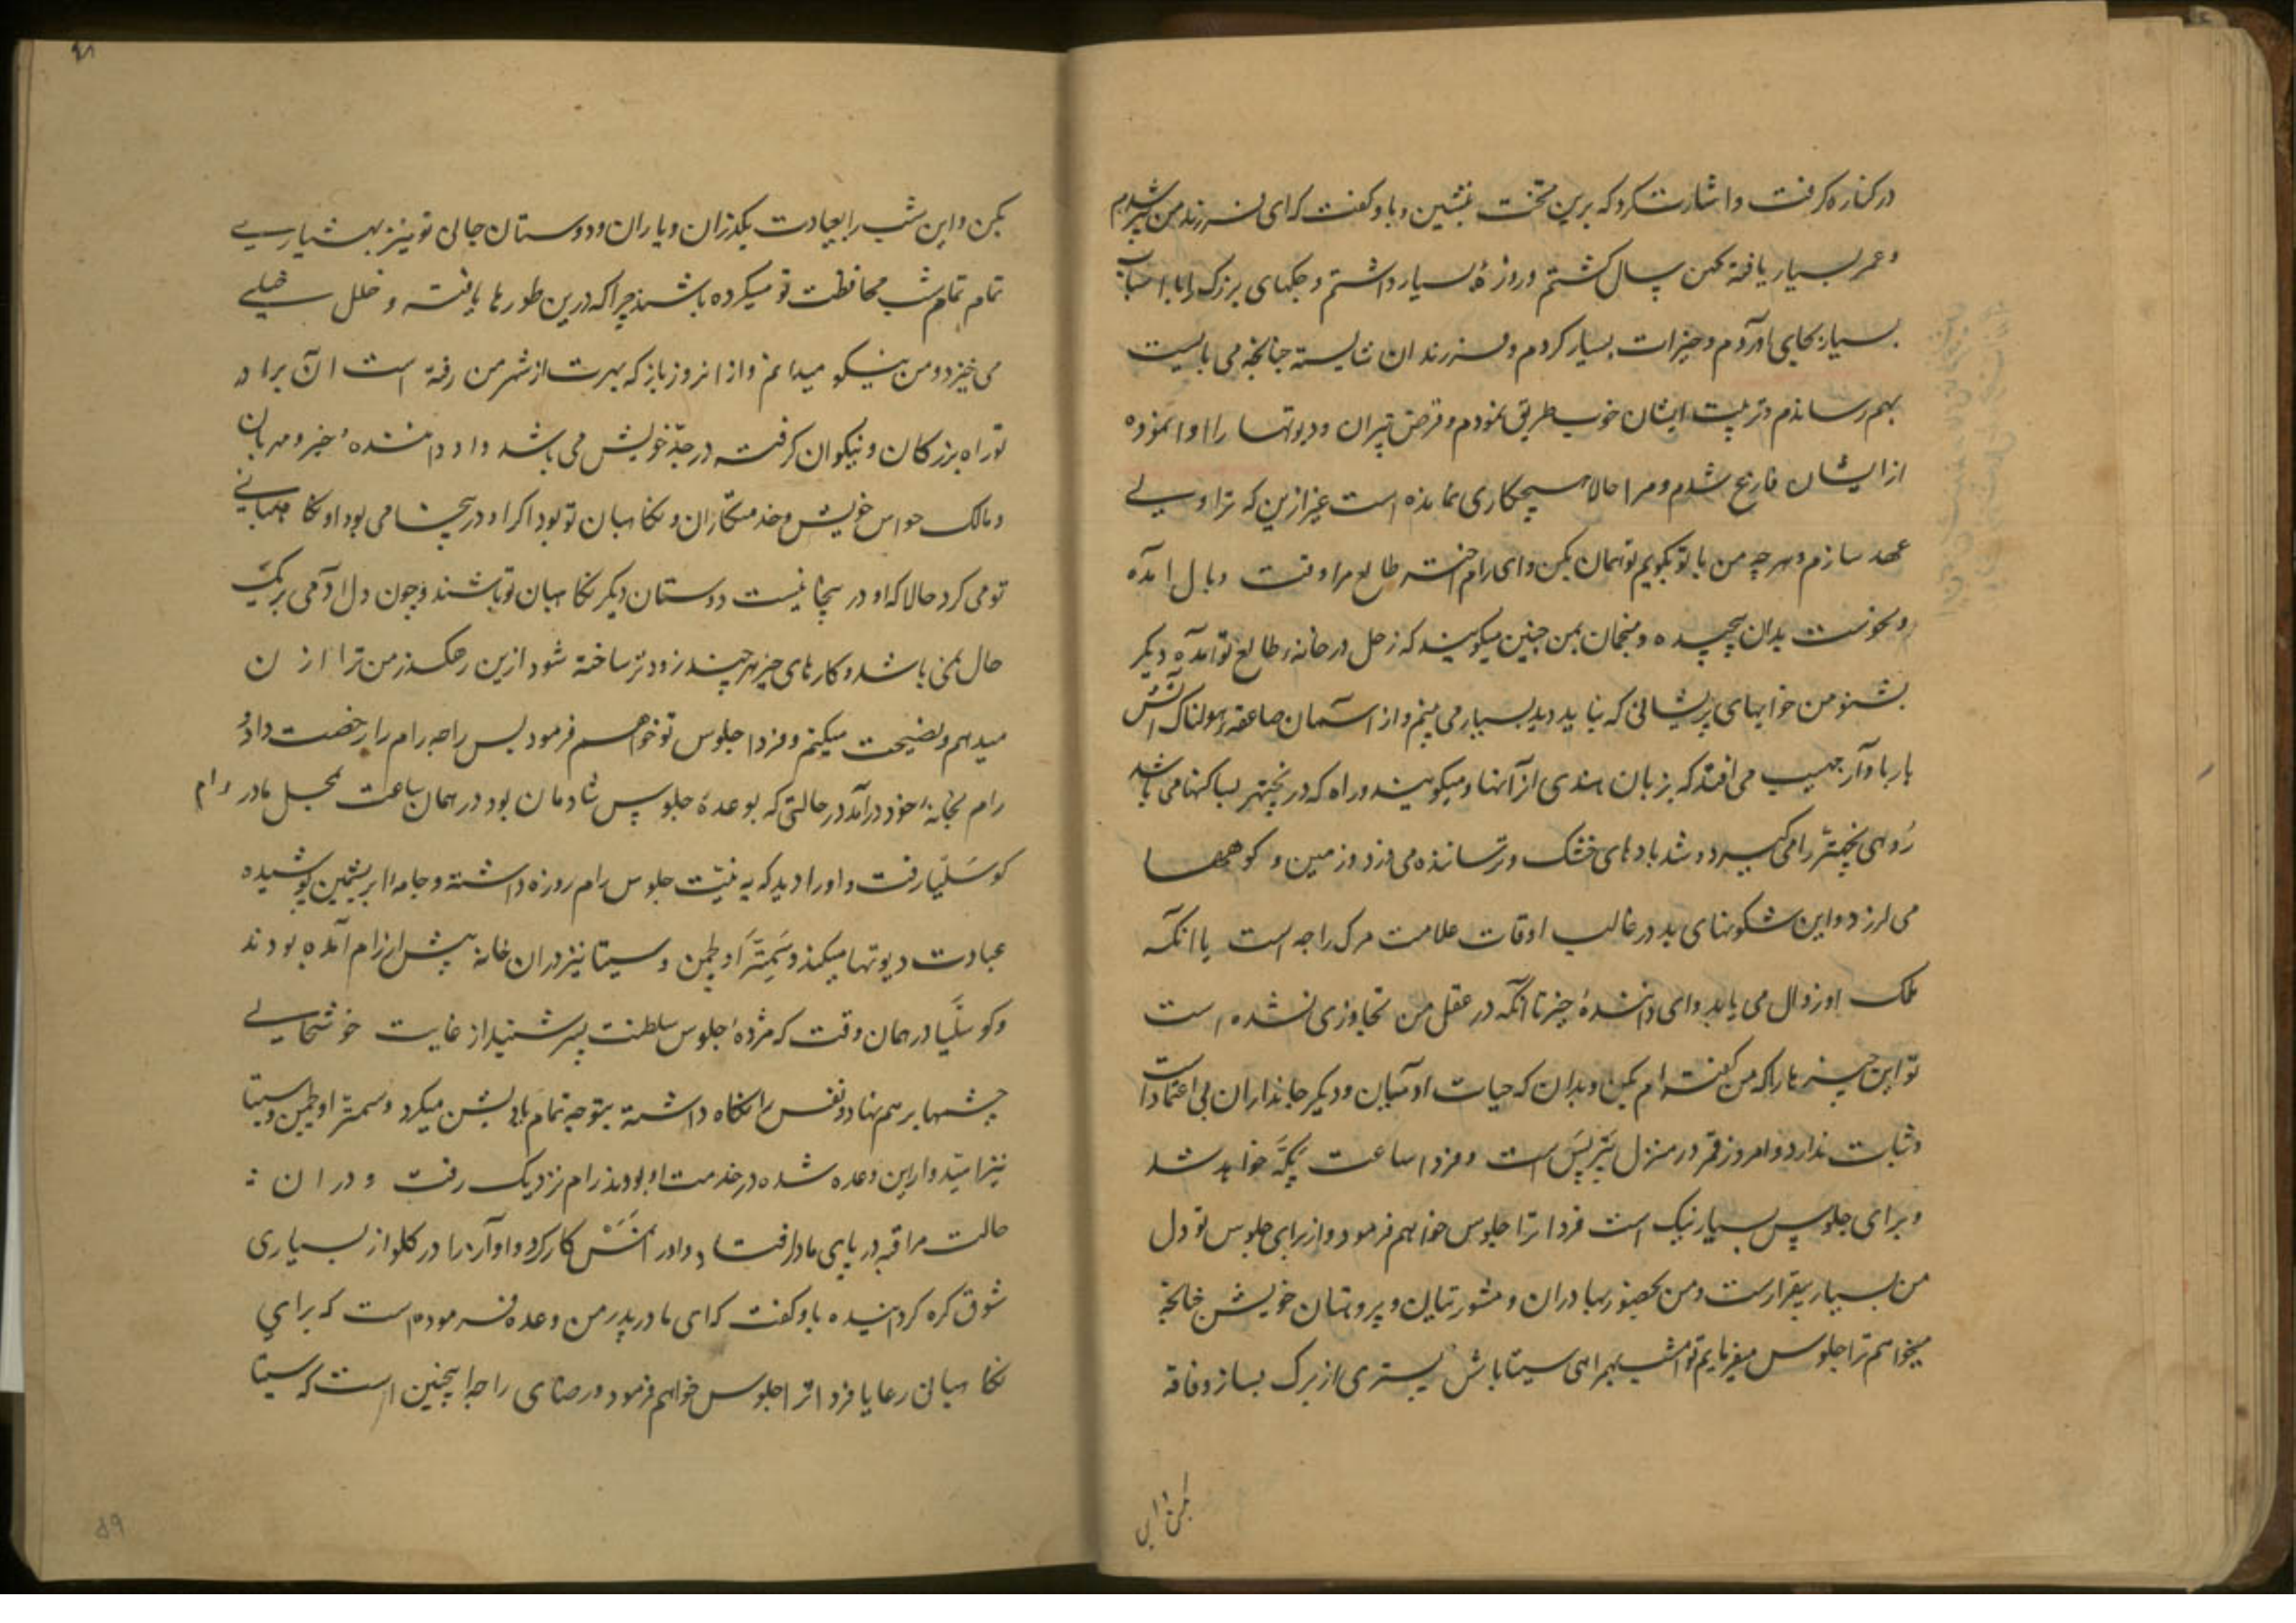 در کناره گرفت و اشارت کرد که برین تخت بنشین و باو گفت که ای فرزند من پیر شدم
و عمر بسیار یافته کهن سال گشتم و روزهٔ بسیار داشتم و جگهای بزرک را با اسباب
بسیار بجای آوردم و خیرات بسیار کردم و فرزندان شایسته چنانچه می بایست
بهم رساندم و تربیت ایشان خوب طریق نمودم و قرض پتران و دیوتها را ادا نموده
از ایشان فارغ شدم و مرا حالا هیچکاری نمانده است غیر ازین که ترا ولی
عهد سازم و هرچه من با تو بگویم تو همان بکن و ای رام اختر طالع مرا وقت وبال آمده
و نحوست بدان پیچیده و منجمان بمن چنین میگویند که زحل در خانهٔ طالع تو آمده دیگر
بشنو من خوابهای پریشانی که نباید دید بسیار می بینم و از آسمان صاعقه هولناک آتش
بار با آواز مهیب می افتد که بزبان هندی از آنها میگویند و راه که در نچهتر ساکنها می باشد
روهی نچهتر را می گیرد و شد بادهای خشک و ترساننده می وزد و زمین و کوهها
می لرزد و این شکونهای بد در غالب اوقات علامت مرک راجه است یا انکه
ملک او زوال می یابد و ای دانندهٔ خیر تا انکه در عقل من تجاوزی نشده است
تو این چیزها را که من گفته ام بکن و بدان که حیات ادمیان و دیگر جانداران بی اعتماد است
و ثبات ندارد و امروز قمر در منزل پنرپس است و فردا ساعت پکهه خواهد شد
و برای جلوس بسیار نیک است فردا ترا جلوس خواهم فرمود و از برای جلوس تو دل
من بسیار بیقرار ست و من بحضور برادران و مشورتیان و پروهتان خویش چنانچه
میخواهم ترا جلوس میفرمایم تو امشب بهمراهی سیتا باش بستری از برک بساز و فاقه
بکن و این
بکن و این شب را بعبادت بگذران و یاران و دوستان جالی تو نیز بهشیاری
تمام تمام شب محافظت تو میکرده باشند چرا که درین طورها یافته و خلل خیلی
می خیزد و من نیکو میدانم و از انروز باز که بهرت از شهر من رفته است آن برادر
تو راه بزرگان و نیکوان گرفته در جدّ خویش می باشد و او دانندهٔ خیر و مهربان
و مالک حواس خویش و خدمتکاران و نگاهبان تو بود اگر او در ینجا می بود او نگاهبانی
تو می کرد حالا که او در ینجا نیست دوستان دیگر نگاهبان تو باشند و چون دل آدمی بریک
حال نمی باشد و کارهای خیر هر چند زود تر ساخته شود ازین رهکذر من ترا اذن
میدهم و نصیحت میکنم و فردا جلوس تو خواهم فرمود پس راجه رام را رخصت داد و
رام بخانهٔ خود درآمد در حالتی که بوعدهٔ جلوس شادمان بود در همان ساعت بمحل مادر رام
کوسلّیا رفت و او را دید که به نیت جلوس رام روزه داشته و جامهٔ ابریشمین پوشیده
عبادت دیوتها میکند و سمترا و لچمن و سیتا نیز دران خانه پیش از رام آمده بودند
و کوسلّیا در همان وقت که مژدهٔ جلوس سلطنت پسر شنید از غایت خوشحالی
چشمها بر هم نهاد و نفس را نگاه داشته بتوجه تمام یاد بشن میکرد و سمترا و لچمن و سیتا
نیز امیدوار این وعده شده در خدمت او بودند رام نزدیک رفت و دران :
حالت مراقبه در پای مادر افتاد و او را نمسکار کرد و آواز را در کلو از بسیاری
شوق گره کردانیده باو گفت که ای مادر پدر من وعده فرموده است که برای
نگاهبانی رعایا فردا ترا جلوس خواهم فرمود و رضای راجه اینچنین است که سیتا
۵۹